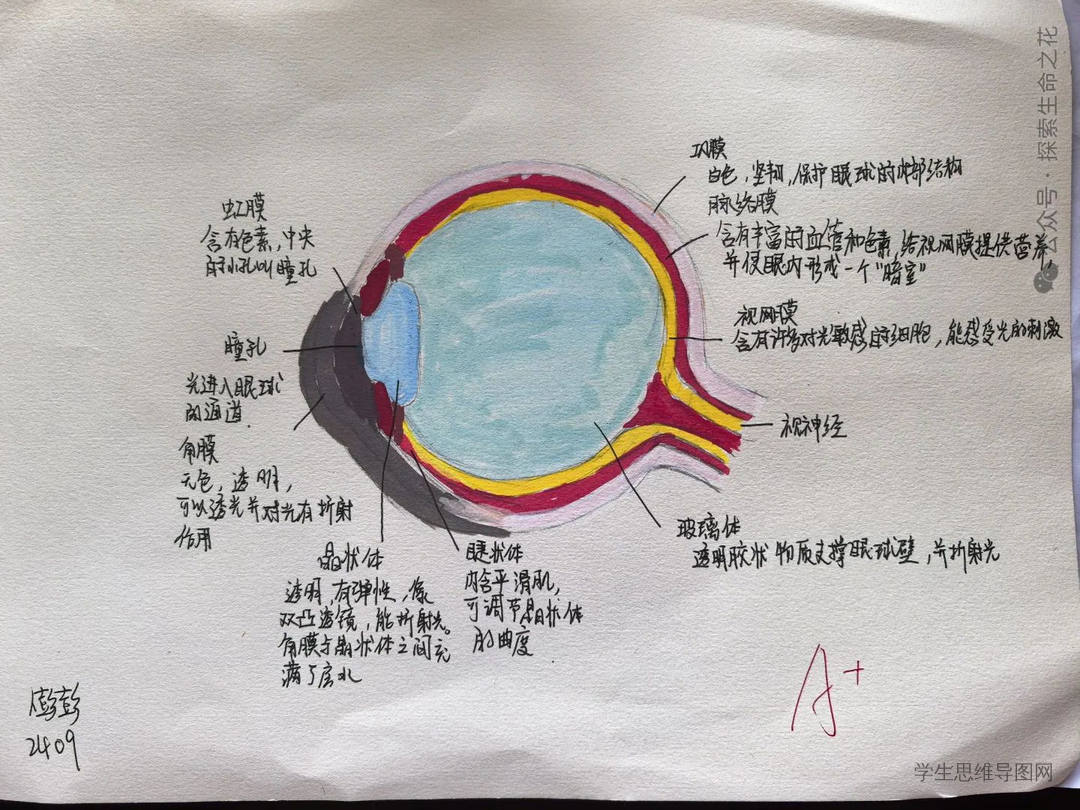 巩膜
白色,坚韧,保护眼球的内部结构
脉络膜
含有丰富的血管和色素,给视网膜提供营养,
并使眼内形成一个“暗室”
视网膜
含有许多对光敏感的细胞,能感受光的刺激
视神经
玻璃体
透明胶状物质支撑眼球壁,并折射光
虹膜
含有色素,中央
的小孔叫瞳孔
瞳孔
光进入眼球
的通道
角膜
无色,透明,
可以透光并对光有折射
作用
晶状体
透明,有弹性,像
双凸透镜,能折射光。
角膜与晶状体之间充
满了房水
睫状体
内含平滑肌,
可调节晶状体
的曲度
彭彭
2409
A+
公众号·探索生命之花
学生思维导图网